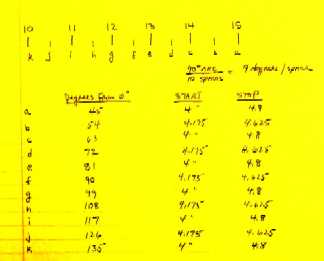 10 11 12 13 14 15
k j i h g f e d c b a
90° arc / 10 spaces = 9 degrees / space
Degrees from 0° START STOP
a 45° 4" 4.8
b 54 4.175 4.625
c 63 4" 4.8
d 72 4.175" 4.625
e 81 4" 4.8
f 90 4.175 4.625
g 99 4" 4.8
h 108 4.175 4.625
i 117 4" 4.8
j 126 4.175 4.625
k 135 4" 4.8